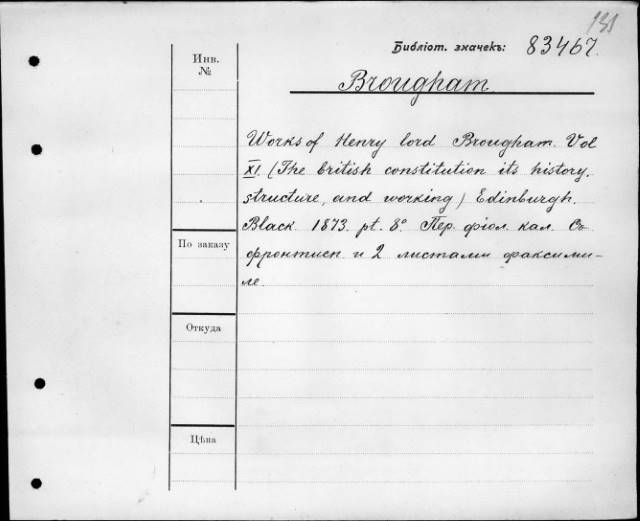 131
Библіот. значекъ: 83467.
Инв.
№
Brougham
Works of Henry lord Brougham. Vol
XI. (The british constitution its history,
structure, and working) Edinburgh.
Black. 1873. pt. 8º. Пер. фіол. кал. Съ
фронтисп. и 2 листами факсими-
ле.
По заказу
Откуда
Цѣна